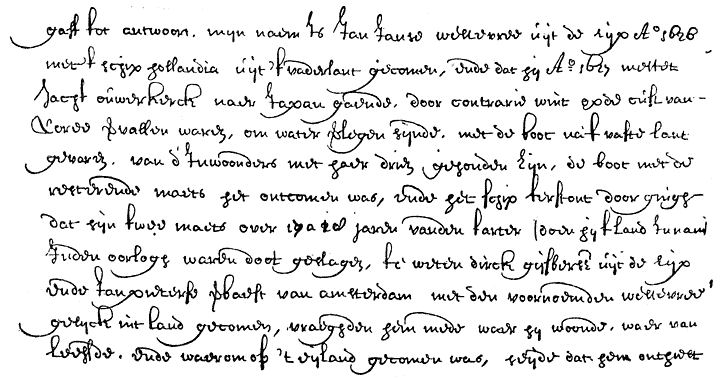 gaff tot antwoort. mijn naem Is Jan Janse weltevree uijt de rijp Aº 1626
met 't schip hollandia uijt 't vaderlant gecomen, ende dat hij Aº 1627 mettet
Jacht ouwerkerck naer Japan gaende. door contrarie wint op de cust van
Coree vervallen waren, om water verlegen sijnde. met de boot naer 't vaste lant
gevaren. van d' Inwoonders met haer drien gehouden sijn, de boot met de
resterende maets het ontcomen was, ende het schip terstont door gingh
dat sijn twee maets over 17 a 18 jaren vanden tarter (doen hij 't land Innam)
Inden oorlogh waren doot geslagen, te weten dirck gijsbertsz uijt de rijp
ende Jan pieterse verbaest van amsterdam met den voornoemden weltevree
gelijck int land gecomen, vraeghden hem mede waer hij woonde. waer van
leefde. ende waerom op 't eijland gecomen was, seijde dat hem onthielt